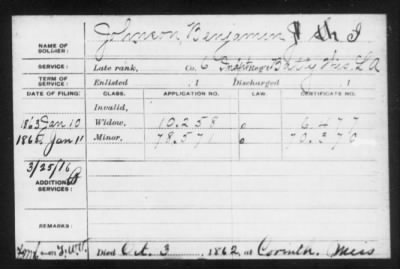 Johnson, Benjamin J
NAME OF SOLDIER:
SERVICE:
Late rank, Co. Batty
TERM OF SERVICE:
Enlisted , 1 Discharged , 1
DATE OF FILING: CLASS. APPLICATION NO. LAW. CERTIFICATE NO.
Invalid,
1863 Jan 10 Widow, 10.258 6.477
Jan 11 Minor, 78.571
3/25/16
ADDITIONAL SERVICES:
REMARKS:
Died Oct. 3, 1862, at Corinth, Miss